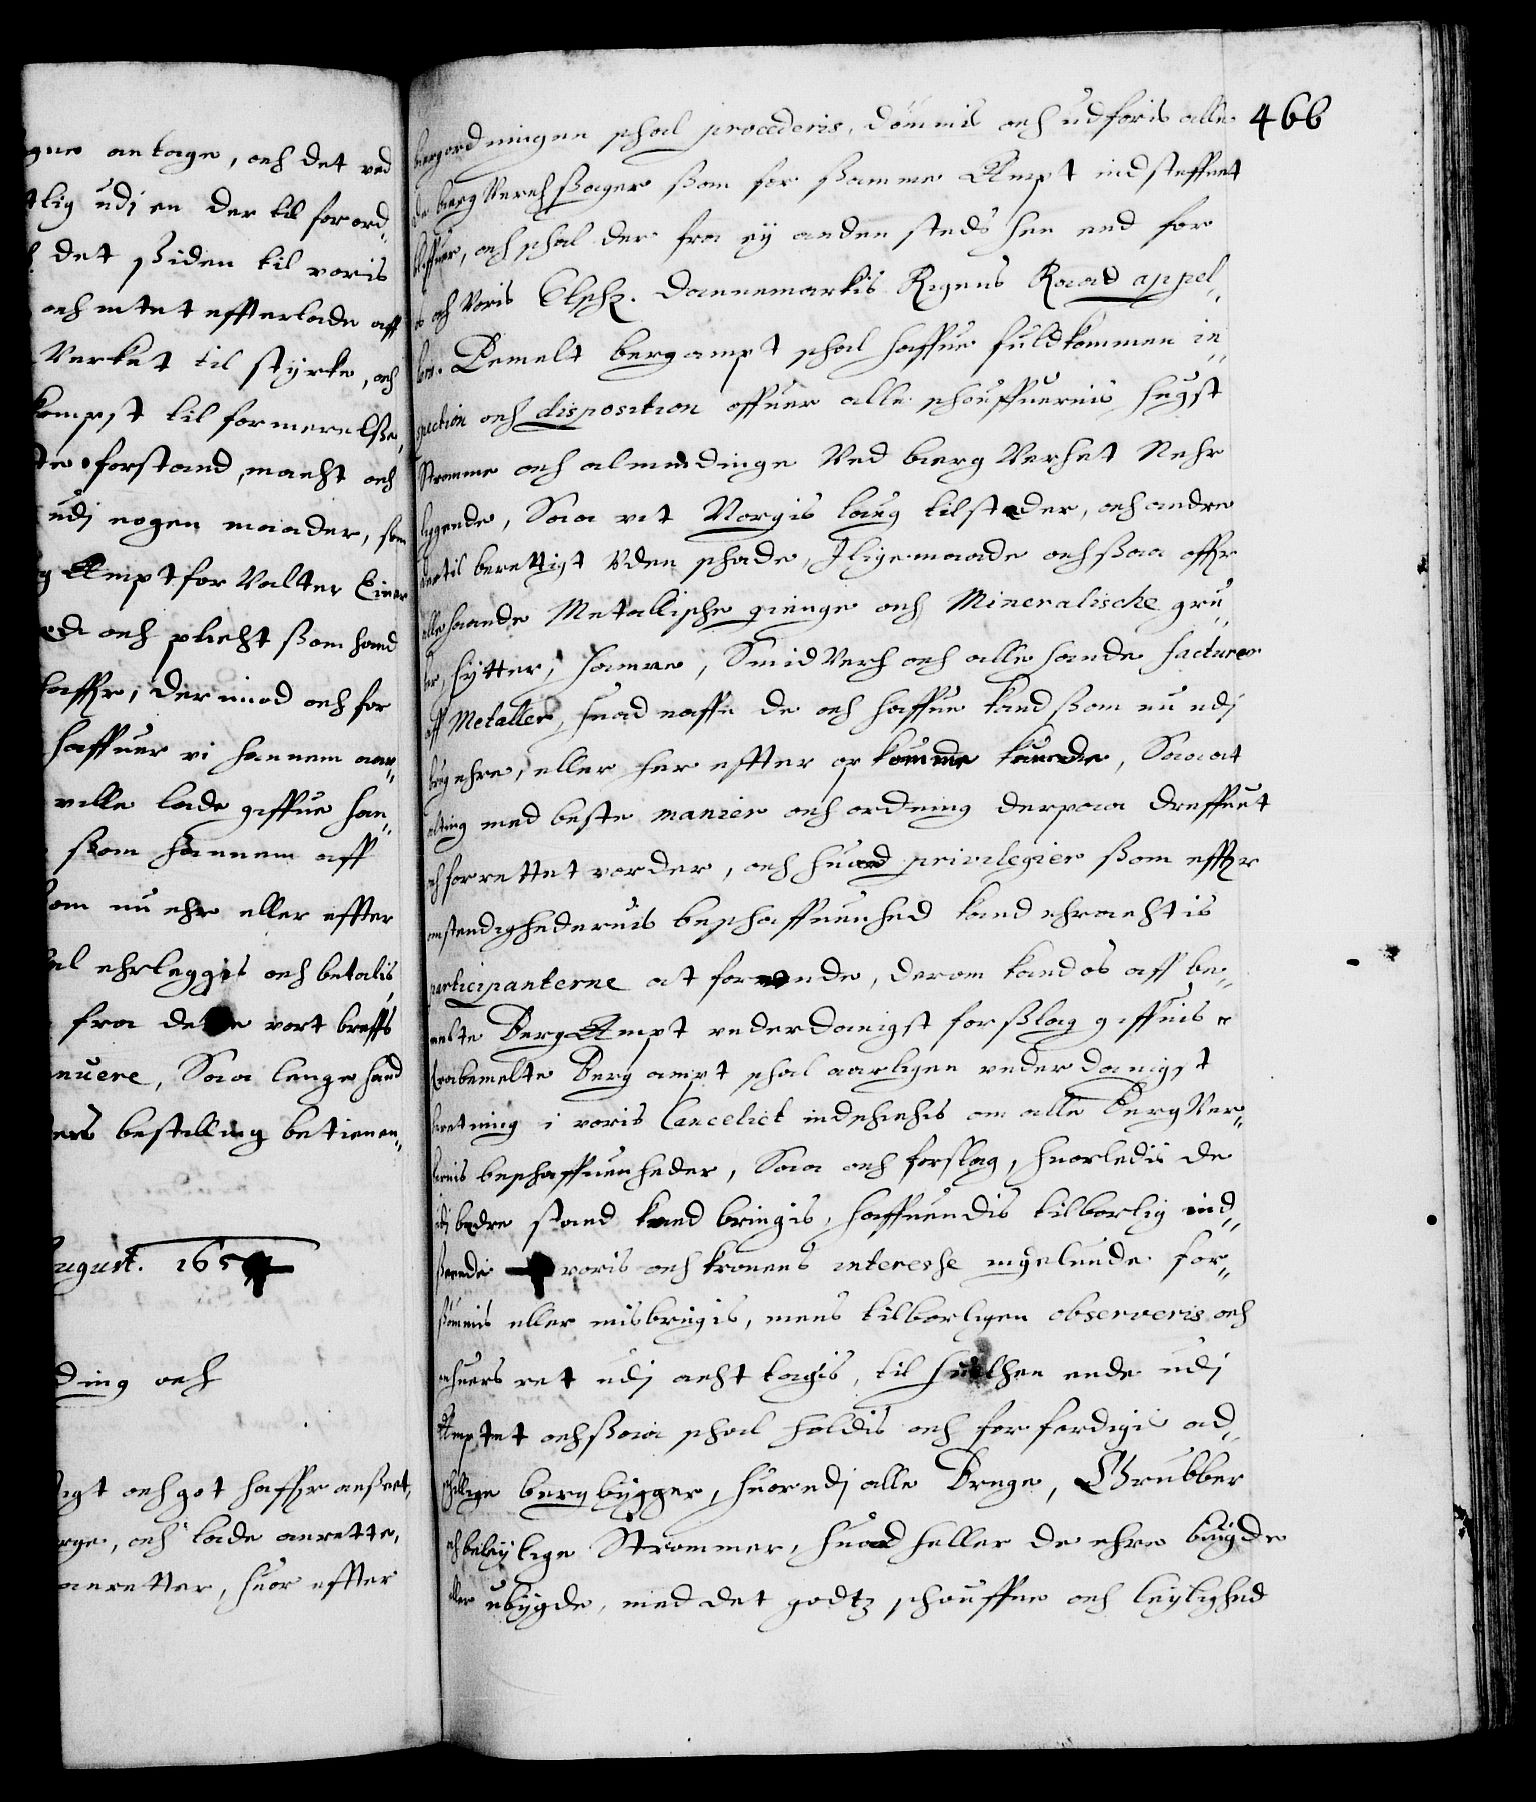 gne antage, och det ved
tlig udj en der til forord„
det siden til voris
och intet effterlade aff
Verket til styrke, och
kompst til formerelsse,
te forstand, macht och
udj nogen maader, som
g Ampt for Valter
och plicht ssom hand
haffr, der imod och for
haffuer vi hannem aar„
ville lade giffue han„
ssom hannem aff
som nu ehr eller effter
al ehrleggis och betalis
fra dette vort breffs
nuere, Saa lenge hand
bestilling betienen„
ugust. 165
ding och
gt och got haffr ansseet,
rge, och lade anrette,
anretter, huor effter
466
bergordningen schal procederis, dömmis och udföris alle
de berg Verch ssager ssom for ssamme Ampt indsteffnet
bliffuer, och schal der fra ey anden steds hen end for
os och Voris Elschl. Dannemarkis Rigens Raad appel„
leris. Bemelt bergampt schal haffue fuldkommen in„
spection och disposition offuer alle schouffuernis hugst
Stromme och almindinge Ved berg Verchet Nehr
liggende, Saa vit Norgis laug tilsteder, och andre
dertil berettigt Uden schade, J ligemaade och ssaa offr
allehaande Metallische gienge och Mineralische gru„
ber, hytter, hamre, Smid Verch och alle hande facturer
aff Metaller, huad naffn de och haffue kand ssom nu udj
brug ehre, eller her effter op komme kunde, Saa at
alting med beste manier och ordning derpaa dreffuet
och forrettet vorder, och huad privilegier ssom effr
omstendighedernis beschaffuenhed kand ehrachtis
participanterne at forunde, derom kand os aff be„
melte BergAmpt underdanigst forsslag giffuis.
Forbemelte Bergampt schal aarligen underdanigst
beretning i voris Cancelict indschichis om alle BergVer„
kernis beschaffuenheder, Saa och forslag, huorledis de
udj bedre stand kand bringis, haffuendis tilborlig ind„
sseende voris och kronens interesse ingelunde for„
ssömmis eller misbrugis, mens tilborligen observeris och
enhuers ret udj acht tagis, til huilchen ende udj
Amptet och ssaa schal holdis och forferdigis ad„
schillige berg bygger, huor udj alle Berge, Grubber
och beleylige Strommer, huad heller de ehre bugde
eller ubygde, med det godtz schouffue och leylighed